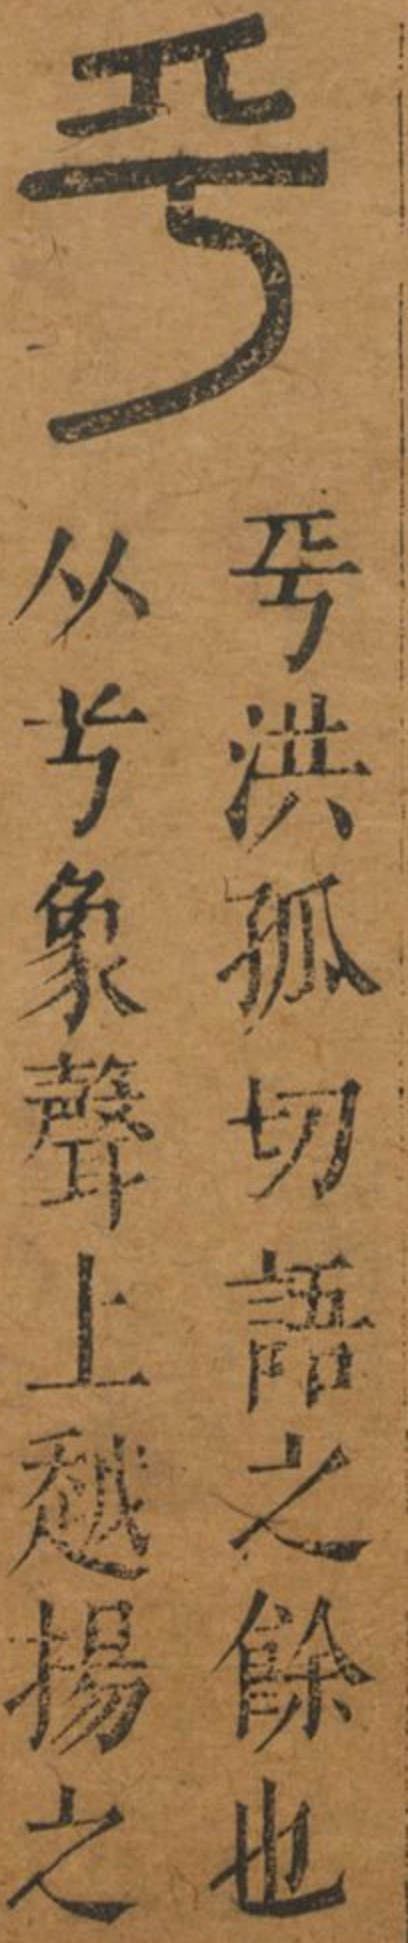 乎
乎洪孤切語之餘也
从兮象聲上越揚之